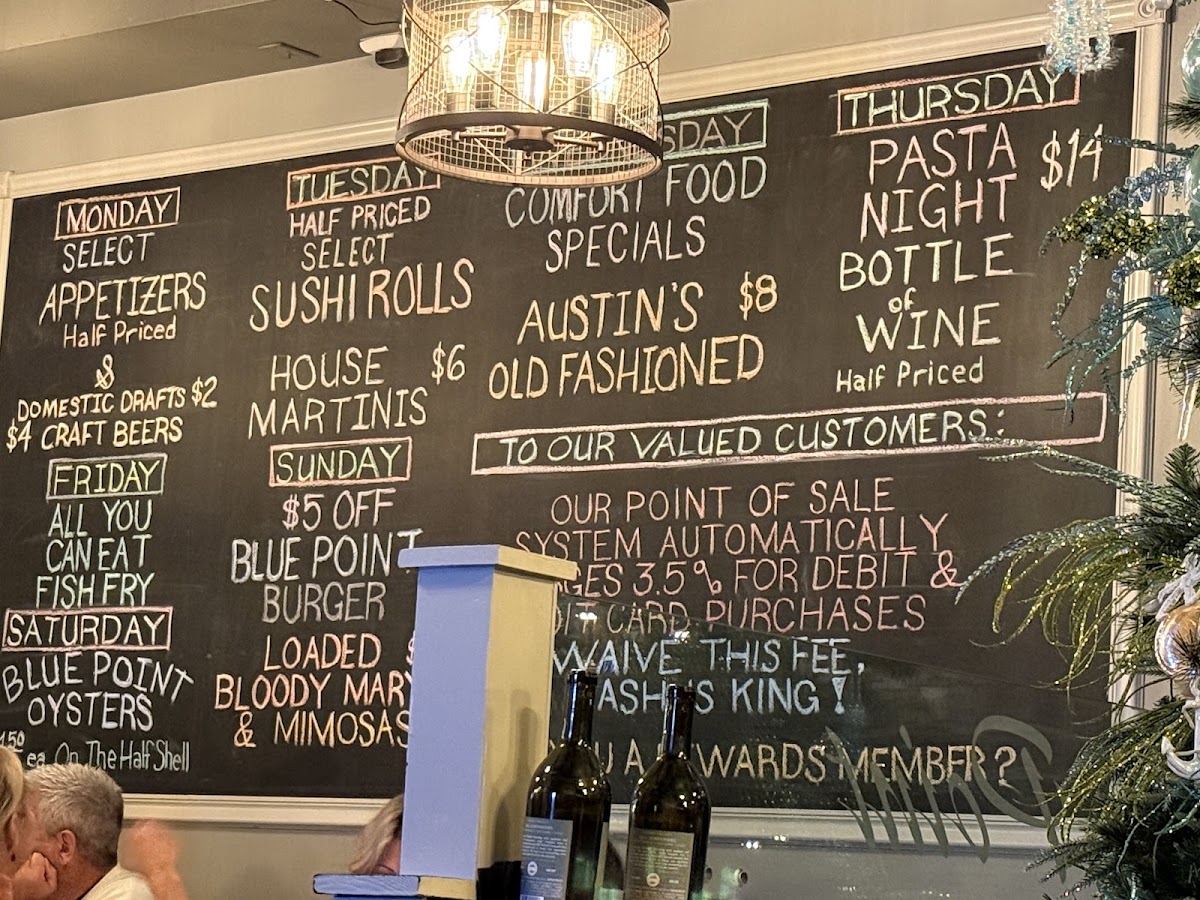 MONDAY
SELECT
APPETIZERS
Half Priced
&
DOMESTIC DRAFTS $2
$4 CRAFT BEERS
TUESDAY
HALF PRICED
SELECT
SUSHI ROLLS
HOUSE $6
MARTINIS
SDAY
COMFORT FOOD
SPECIALS
AUSTIN'S $8
OLD FASHIONED
THURSDAY
PASTA $14
NIGHT
BOTTLE
of
WINE
Half Priced
FRIDAY
ALL YOU
CAN EAT
FISH FRY
SATURDAY
BLUE POINT
OYSTERS
1.50
ea. On The Half Shell
SUNDAY
$5 OFF
BLUE POINT
BURGER
LOADED
BLOODY MARY
& MIMOSAS
TO OUR VALUED CUSTOMERS:
OUR POINT OF SALE
SYSTEM AUTOMATICALLY
GES 3.5% FOR DEBIT &
IT CARD PURCHASES
WAIVE THIS FEE,
ASH IS KING!
U A WARDS MEMBER?